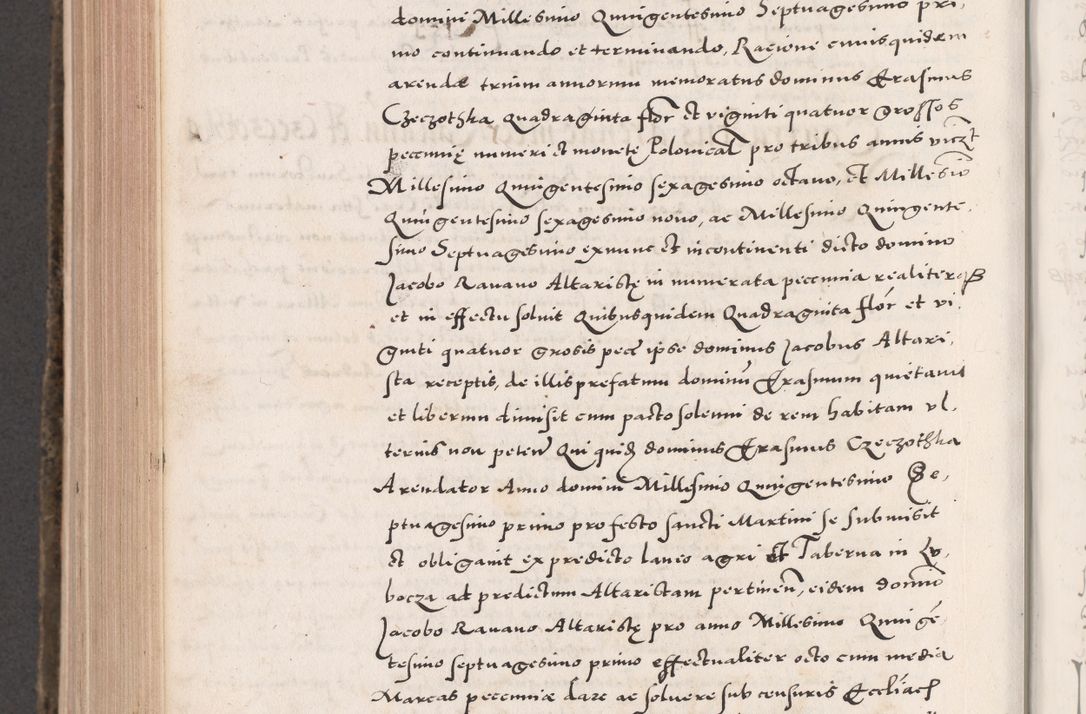 domini Millesimo Quingentesimo Septuagesimo pri,
mo continuando et terminando, Racione cuiusquidem
arendæ trium annorum memoratus dominus Erasmus
Czeczothka Quadraginta floř et viginti quatuor grossos
pecunię numeri et monetę Polonical pro tribus annis vicžt
Millesimo Quingentesimo sexagesimo octavo, et Millesiō
Quingentesimo sexagesimo nono, ac Millesimo Quingente,
simo Septuagesimo exnunc et incontinenti dicto domino
Jacobo Ravano Altaristę in numerata peccunia realiter
et in effectu solvit Quibusquidem Quadraginta floř et vi,
ginti quatuor grosis pecč ipse dominus Jacobus Altari,
sta receptis, de illis prefatum dominū Erasmum quietavit
et liberum dimisit cum pacto solenni de rem habitam vl,
terius non peteñ Qui quidӡ dominus Erasmus Czeczothka
Arendator Anno domini Millesimo Quingentesimo Se,
ptuagesimo primo pro festo sancti Martini se submisit
et obligavit ex predicto laneo agri et Taberna in Lu,
bocza ad predictum Altaristam pertineñ, eidem domīo
Jacobo Ravano Altaristę pro anno Millesimo Quingē
tesimo septuagesimo primo effectualiter octo cum media
Marcas pecuniæ dare ac solvere sub censuris Eccliacƺ